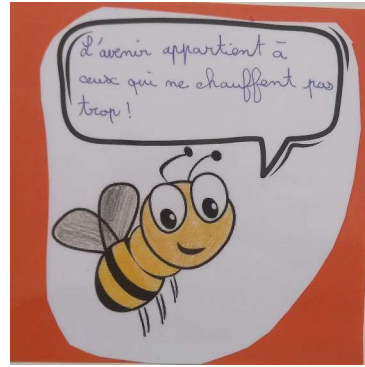 L'avenir appartient à
ceux qui ne chauffent pas
trop !